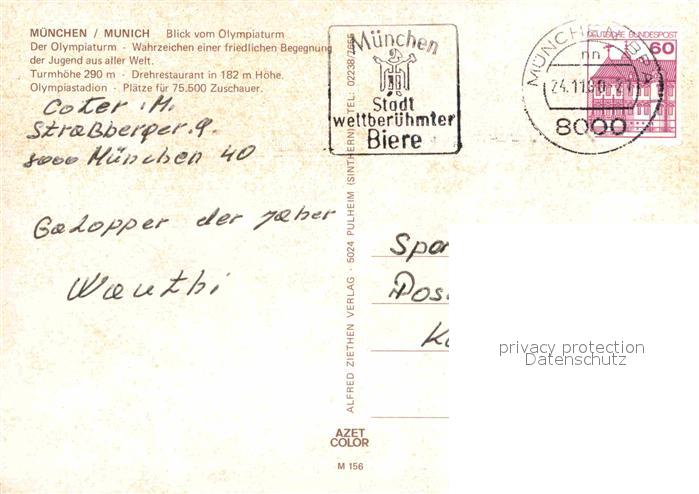 MÜNCHEN / MUNICH Blick vom Olympiaturm
Der Olympiaturm - Wahrzeichen einer friedlichen Begegnung
der Jugend aus aller Welt.
Turmhöhe 290 m - Drehrestaurant in 182 m Höhe.
Olympiastadion - Plätze für 75.600 Zuschauer.
Coter .M.
Straßberger.9.
8000 München 40
Galopper der jaher
Wauthi
ALFRED ZIETHEN VERLAG · 5024 PULHEIM (SINTHERN) · TEL. 02238/7656
München
Stadt
weltberühmter
Biere
MÜNCHEN
24.11.80-21
8000
DEUTSCHE BUNDESPOST
60
Spor
Pos
K
privacy protection
Datenschutz
AZET
COLOR
M 156